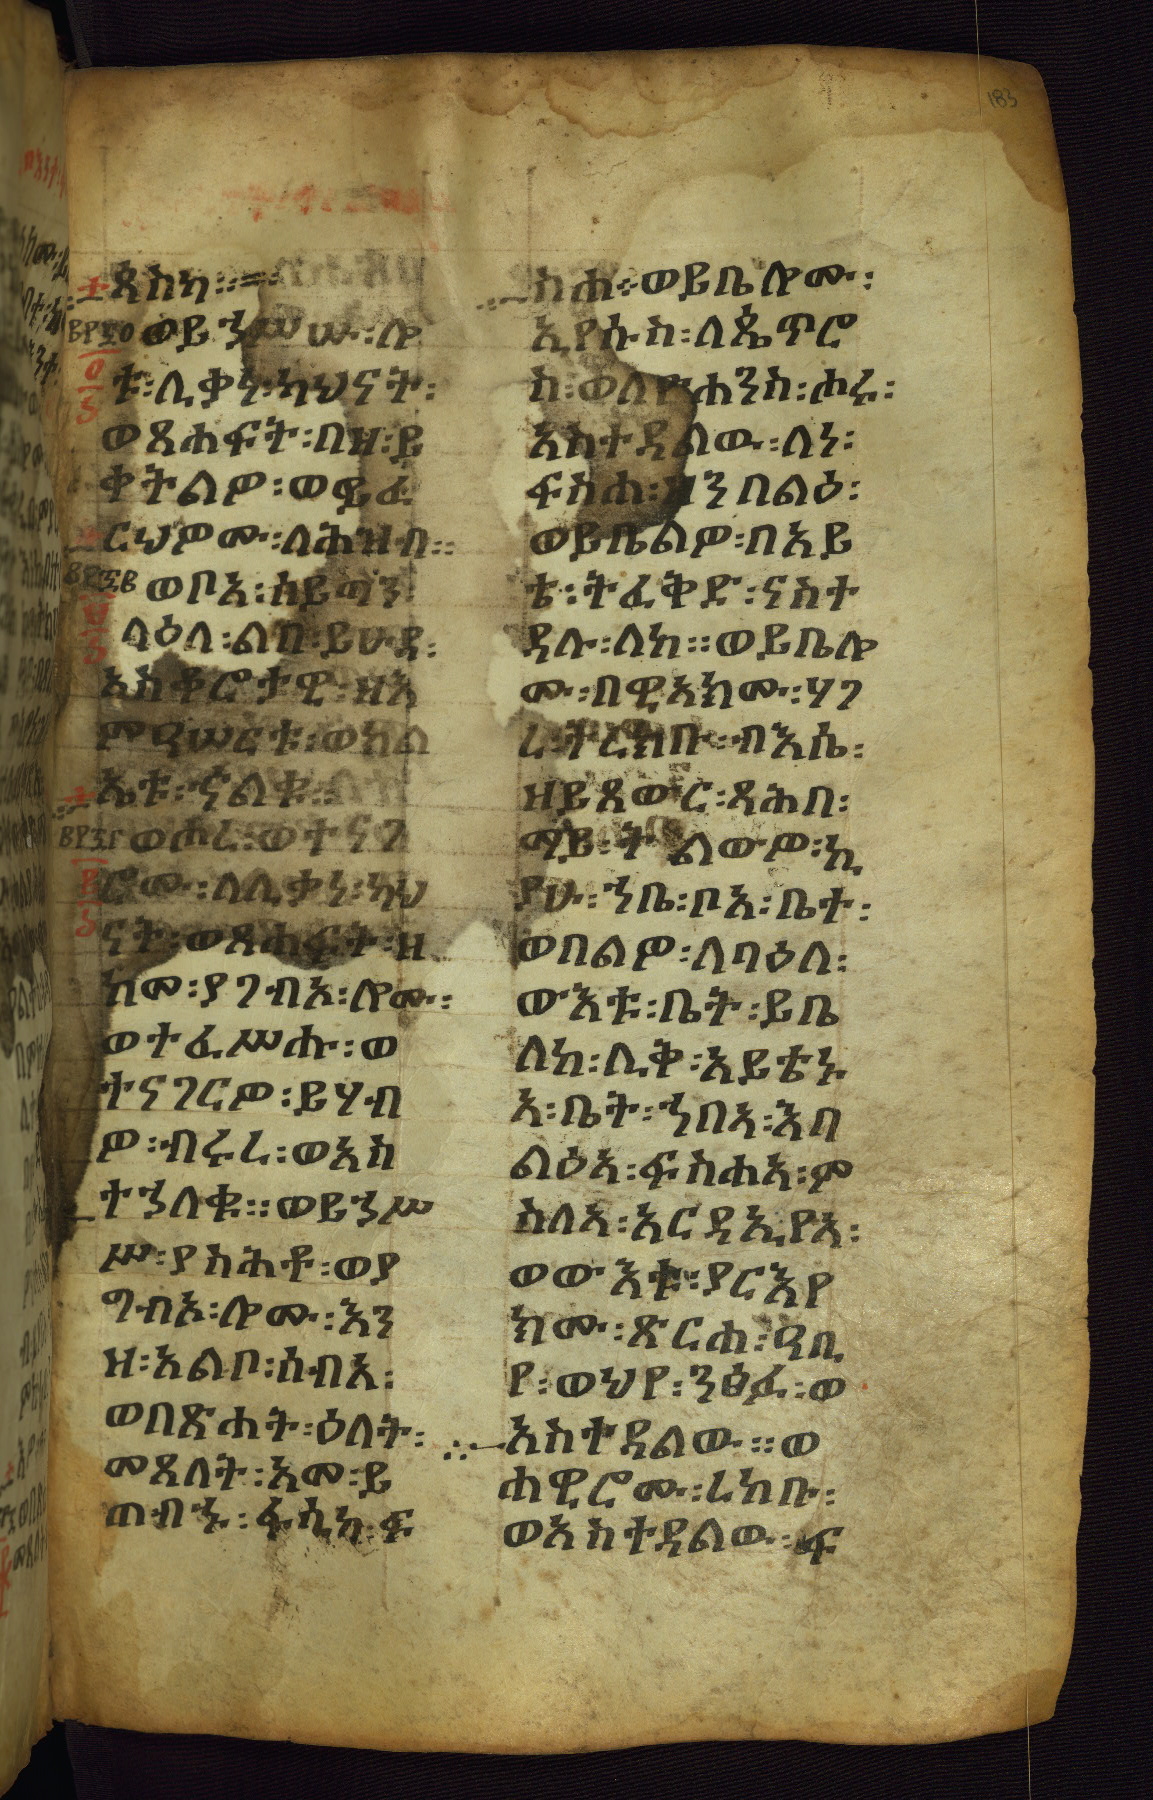 183
ጰስካ።
ወይኀሥሡ፡ሎ
ቱ፡ሊቃነ፡ካህናት፡
ወጸሐፍት፡በዘ፡ይ
ቀትልዎ፡ወይፈ
ርህዎሙ፡ለሕዝብ።
ወቦአ፡ሰይጣን፡
ላዕለ፡ልበ፡ይሁዳ፡
አስቆሮታዊ፡ዘእ
ምዓሠርቱ፡ወክል
ኤቱ፡ኍልቁ።
ወሐረ፡ወተናገ
ሮሙ፡ለሊቃነ፡ካህ
ናት፡ወጸሐፍት፡ዘ
ከመ፡ያገብእ፡ሎሙ፡
ወተፈሥሑ፡ወ
ተናገርዎ፡ይሃብ
ዎ፡ብሩረ፡ወአስ
ተኀለቁ።ወይኀሥ
ሥ፡ያስሕቶ፡ወያ
ግብኦ፡ሎሙ፡እን
ዘ፡አልቦ፡ሰብአ፡
ወበጽሐት፡ዕለት፡
መጸለት፡አመ፡ይ
ጠብኁ፡ፋሲካ፡ፍ
ስሐ፡ወይቤሎሙ፡
ኢየሱስ፡ለጴጥሮ
ስ፡ወለዮሐንስ፡ሖሩ፡
አስተዳልው፡ለነ፡
ፍስሐ፡ዘንበልዕ፡
ወይቤልዎ፡በአይ
ቴ፡ትፈቅድ፡ናስተ
ዳሉ፡ለከ።ወይቤሎ
ሙ፡በዊአክሙ፡ሃገ
ረ፡ትረክቡ፡ብእሴ፡
ዘይጸውር፡ጻሕበ፡
ማይ፡ትልውዎ፡ኪ
ያሁ፡ኀቤ፡ቦአ፡ቤተ፡
ወበልዎ፡ለባዕለ፡
ውእቱ፡ቤት፡ይቤ
ለከ፡ሊቅ፡አይቴኑ
አ፡ቤት፡ኀበአ፡እበ
ልዕአ፡ፍስሐአ፡ም
ስለአ፡አርዳኢየአ፡
ወውእቱ፡ያርእየ
ክሙ፡ጽርሐ፡ዓቢ
የ፡ወህየ፡ንፅፈ፡ወ
አስተዳልው።ወ
ሐዊሮሙ፡ረከቡ፡
ወአስተዳልው፡ፍ